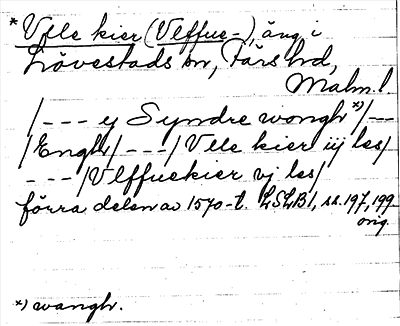 * Vlle kier (Vlffue-), äng i
Lövestads sn, Färs hd,
Malm. l
/--- ej Syndre wongh *)/---
/Engh/---/Vlle kier iij les/
---/Vlffuekier vj les/
förra delen av 1570-t. LSLB1, ss. 197, 199
orig.
*) wangh.